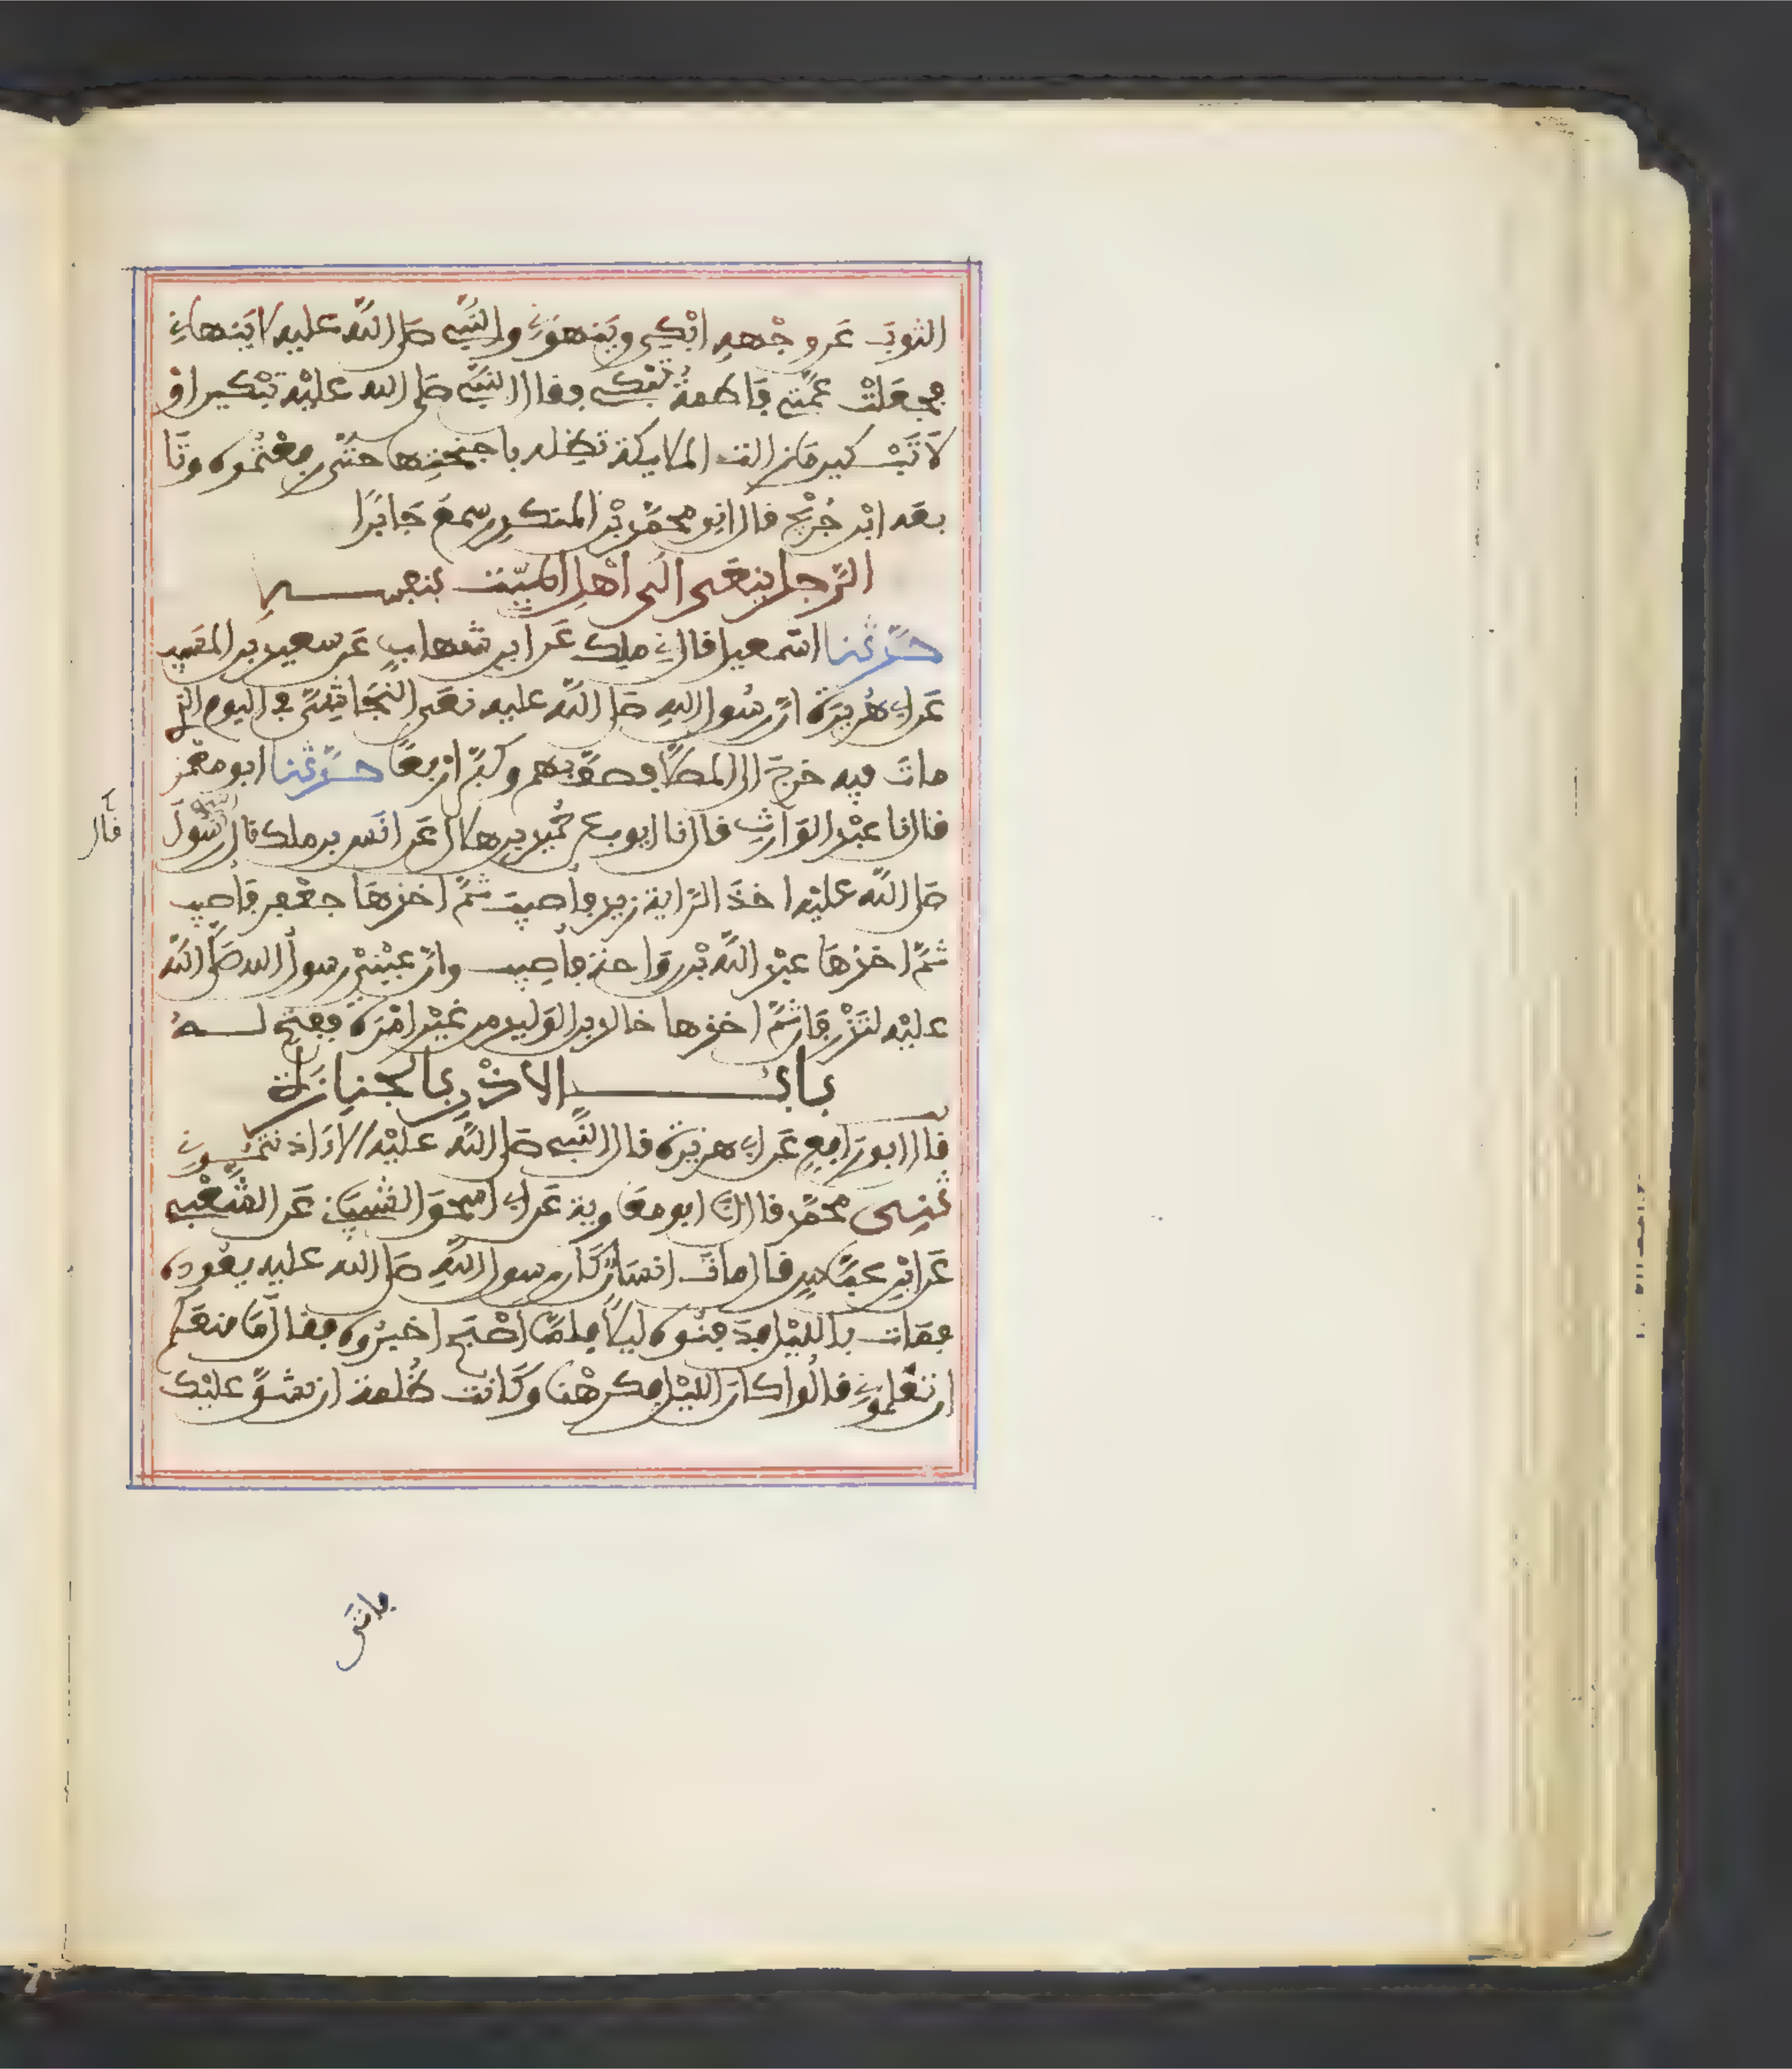 الثوبَ عَن وجْههِ ابْكي ويَنهوْنِي والنَّبي صَلى اللّه عليه لا يَنهانِي
فجعَلتْ عمَّتي فَاطمةُ تبْكي فقال النَّبي صَلى الله عليْه تبْكين اوْ
لاَ تَبْكين مَا زالت الملايكة تُظِله باجنحتِها حتَّى رفعْتُموه وتَا
بعَه ابْن جُرَيْج قال انِي محمَّد بْن المنكدِر سمعَ جَابرًا
الرَّجل ينعَى الى اهْلِ الميّت بنفسهِ
حدَّثنا اسْمعيل قال نِي ملِك عَن ابن شهابٍ عَن سعيد بن المسَيب
عَن ابِي هُريرَة انَّ رسُول اللهِ صَلى اللّه عليه نعَى النجَاشِيَّ في اليوم الذِي
ماتَ فيه خرجَ الى المصلَّا فصفَّ بهم وكبَّر ارْبعًا حدَّثنا ابو معْمَر
قال نا عبْد الوَارِثِ قال نا ايوب عن حُمَيْد بن هلال عَن انَس بن ملك قال رَسُولَ
صَلى اللّه عليْه اخذَ الرَّاية زيد فاُصيبَ ثمَّ اخذهَا جعْفر فَاُصيب
ثمَّ اخذهَا عبْد اللّه بْن رَوَاحة فاُصيب وانَّ عيْنيْ رسول الله صَلَّى اللّه
عليْه لتَذْرِفَان ثمَّ اخذها خالد بن الوَليد من غيْر امْرَة ففتح لــهُ
بـابُ الاذْنِ بالجنازَة
قَال ابو رَافِعٍ عَن ابِي هريْرَة قال النَّبي صَلى اللّه عليْه الا اذَنتمُــونِي
ثنِـى محمَّد قال انا ابو معَاوِية عَن ابِي اسحٰق الشَّيبَانِي عَن الشَّعْبِي
عَن ابْن عبَّاسٍ قال ماتَ انسَانٌ كَان رسول اللّهِ صَلى الله عليه يعُوده
فمَات بالليْل فدَفنُوه ليلًا فلمَّا اصْبَح اخبرُوه فقال مَا منعَكم
ان تعْلمونِي قالُوا كان الليْل فكرهْنا وكَانت ظُلمة ان نشقَّ عليْك
قال
فاتَى